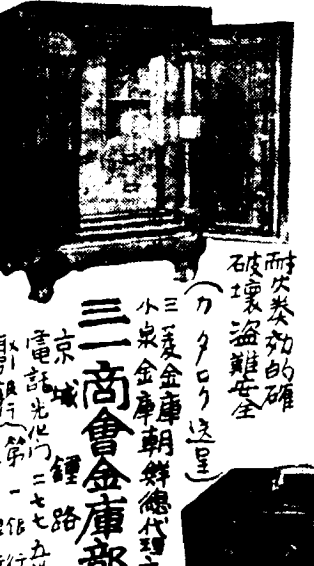 耐火奏効的確
破壞盜難安全
(カタログ送呈)
三菱金庫
小泉金庫 朝鮮總代理
三一商會金庫部
京城 鍾路
電話光化門二七七五
第一銀行